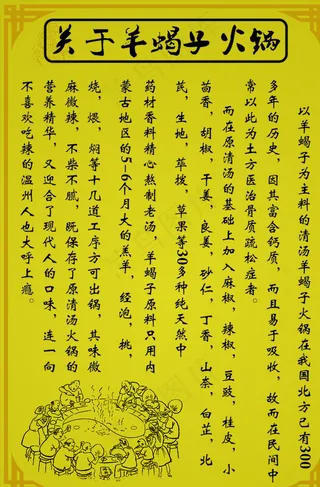 关于羊蝎子火锅
以羊蝎子为主料的清汤羊蝎子火锅在我国北方已有300
多年的历史，因其富含钙质，而且易于吸收，故而在民间中
常以此为土方医治骨质疏松症者。
而在原清汤的基础上加入麻椒，辣椒，豆豉，桂皮，小
茴香，胡椒，干姜，良姜，砂仁，丁香，山柰，白芷，北
芪，生地，荜拨，草果等30多种纯天然中
药材香料精心熬制老汤 羊蝎子原料只用内
蒙古地区的5-6个月大的羔羊，经泡，挑，
烧，煨，焖等十几道工序方可出锅，其味微
麻微辣，不柴不腻，既保存了原清汤火锅的
营养精华，又迎合了现代人的口味，连一向
不喜欢吃辣的温州人也大呼上瘾。